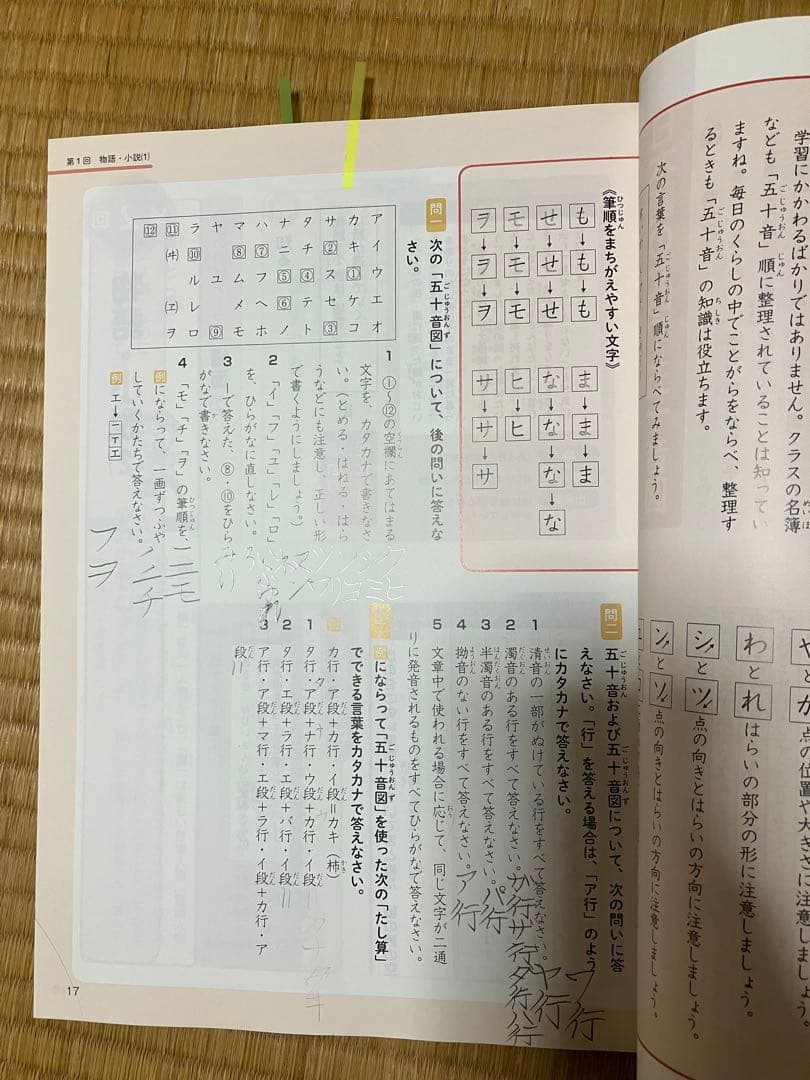 学習にかかわるばかりではありません。クラスの名簿
なども「五十音」順に整理されていることは知ってい
ますね。毎日のくらしの中でことがらをならべ、整理す
るときも「五十音」の知識は役立ちます。
次の言葉を「五十音」順にならべてみましょう。
わとれ はらいの部分の形に注意しましょう。
シとツ 点の向きとはらいの方向に注意しましょう。
ンとソ 点の向きとはらいの方向に注意しましょう。
第1回 物語・小説(1)
《筆順をまちがえやすい文字》
も→も→も
せ→せ→せ
モ→モ→モ
ヲ→ヲ→ヲ
ま→ま→ま
な→な→な→な
ヒ→ヒ
サ→サ→サ
問一 次の「五十音図」について、後の問いに答えな
さい。
アイウエオ
カキ①ケコ
サ②スセ③
タチ④テト
ナニ⑤⑥ノ
ハ⑦フヘホ
マ⑧ムメモ
ヤ ユ ⑨
ラ⑩ルレロ
⑪(ヰ) (ヱ)ヲ
⑫
1 ①〜⑫の空欄にあてはまる
文字を、カタカナで書きなさ
い。(とめる・はねる・はら
うなどにも注意し、正しい形
で書くようにしましょう。)
2 「イ」「フ」「ユ」「レ」「ロ」
を、ひらがなに直しなさい。
3 1で答えた、⑧・⑩をひら
がなで書きなさい。
みり
4 「モ」「チ」「ヲ」の筆順を、
例にならって、一画ずつふや
していくかたちで答えなさい。
例 エ→一丁エ
一二モ
ノ二チ
フヲ
問二 五十音および五十音図について、次の問いに答
えなさい。「行」を答える場合は、「ア行」のよう
にカタカナで答えなさい。
1 清音の一部がぬけている行をすべて答えなさい。
ヤ行 ワ行
2 濁音のある行をすべて答えなさい。
カ行 サ行 タ行 ハ行
3 半濁音のある行をすべて答えなさい。
ハ行
4 拗音のない行をすべて答えなさい。
ア行
5 文章中で使われる場合に応じて、同じ文字が二通
りに発音されるものをすべてひらがなで答えなさい。
例にならって「五十音図」を使った次の「たし算」
でできる言葉をカタカナで答えなさい。
カ行・ア段+カ行・イ段=カキ(柿)
1 タ行・ア段+ナ行・ウ段+カ行・イ段
2 タ行・エ段+ラ行・エ段+バ行・イ段=
3 ア行・ア段+マ行・エ段+ラ行・イ段+カ行・ア
段=
17